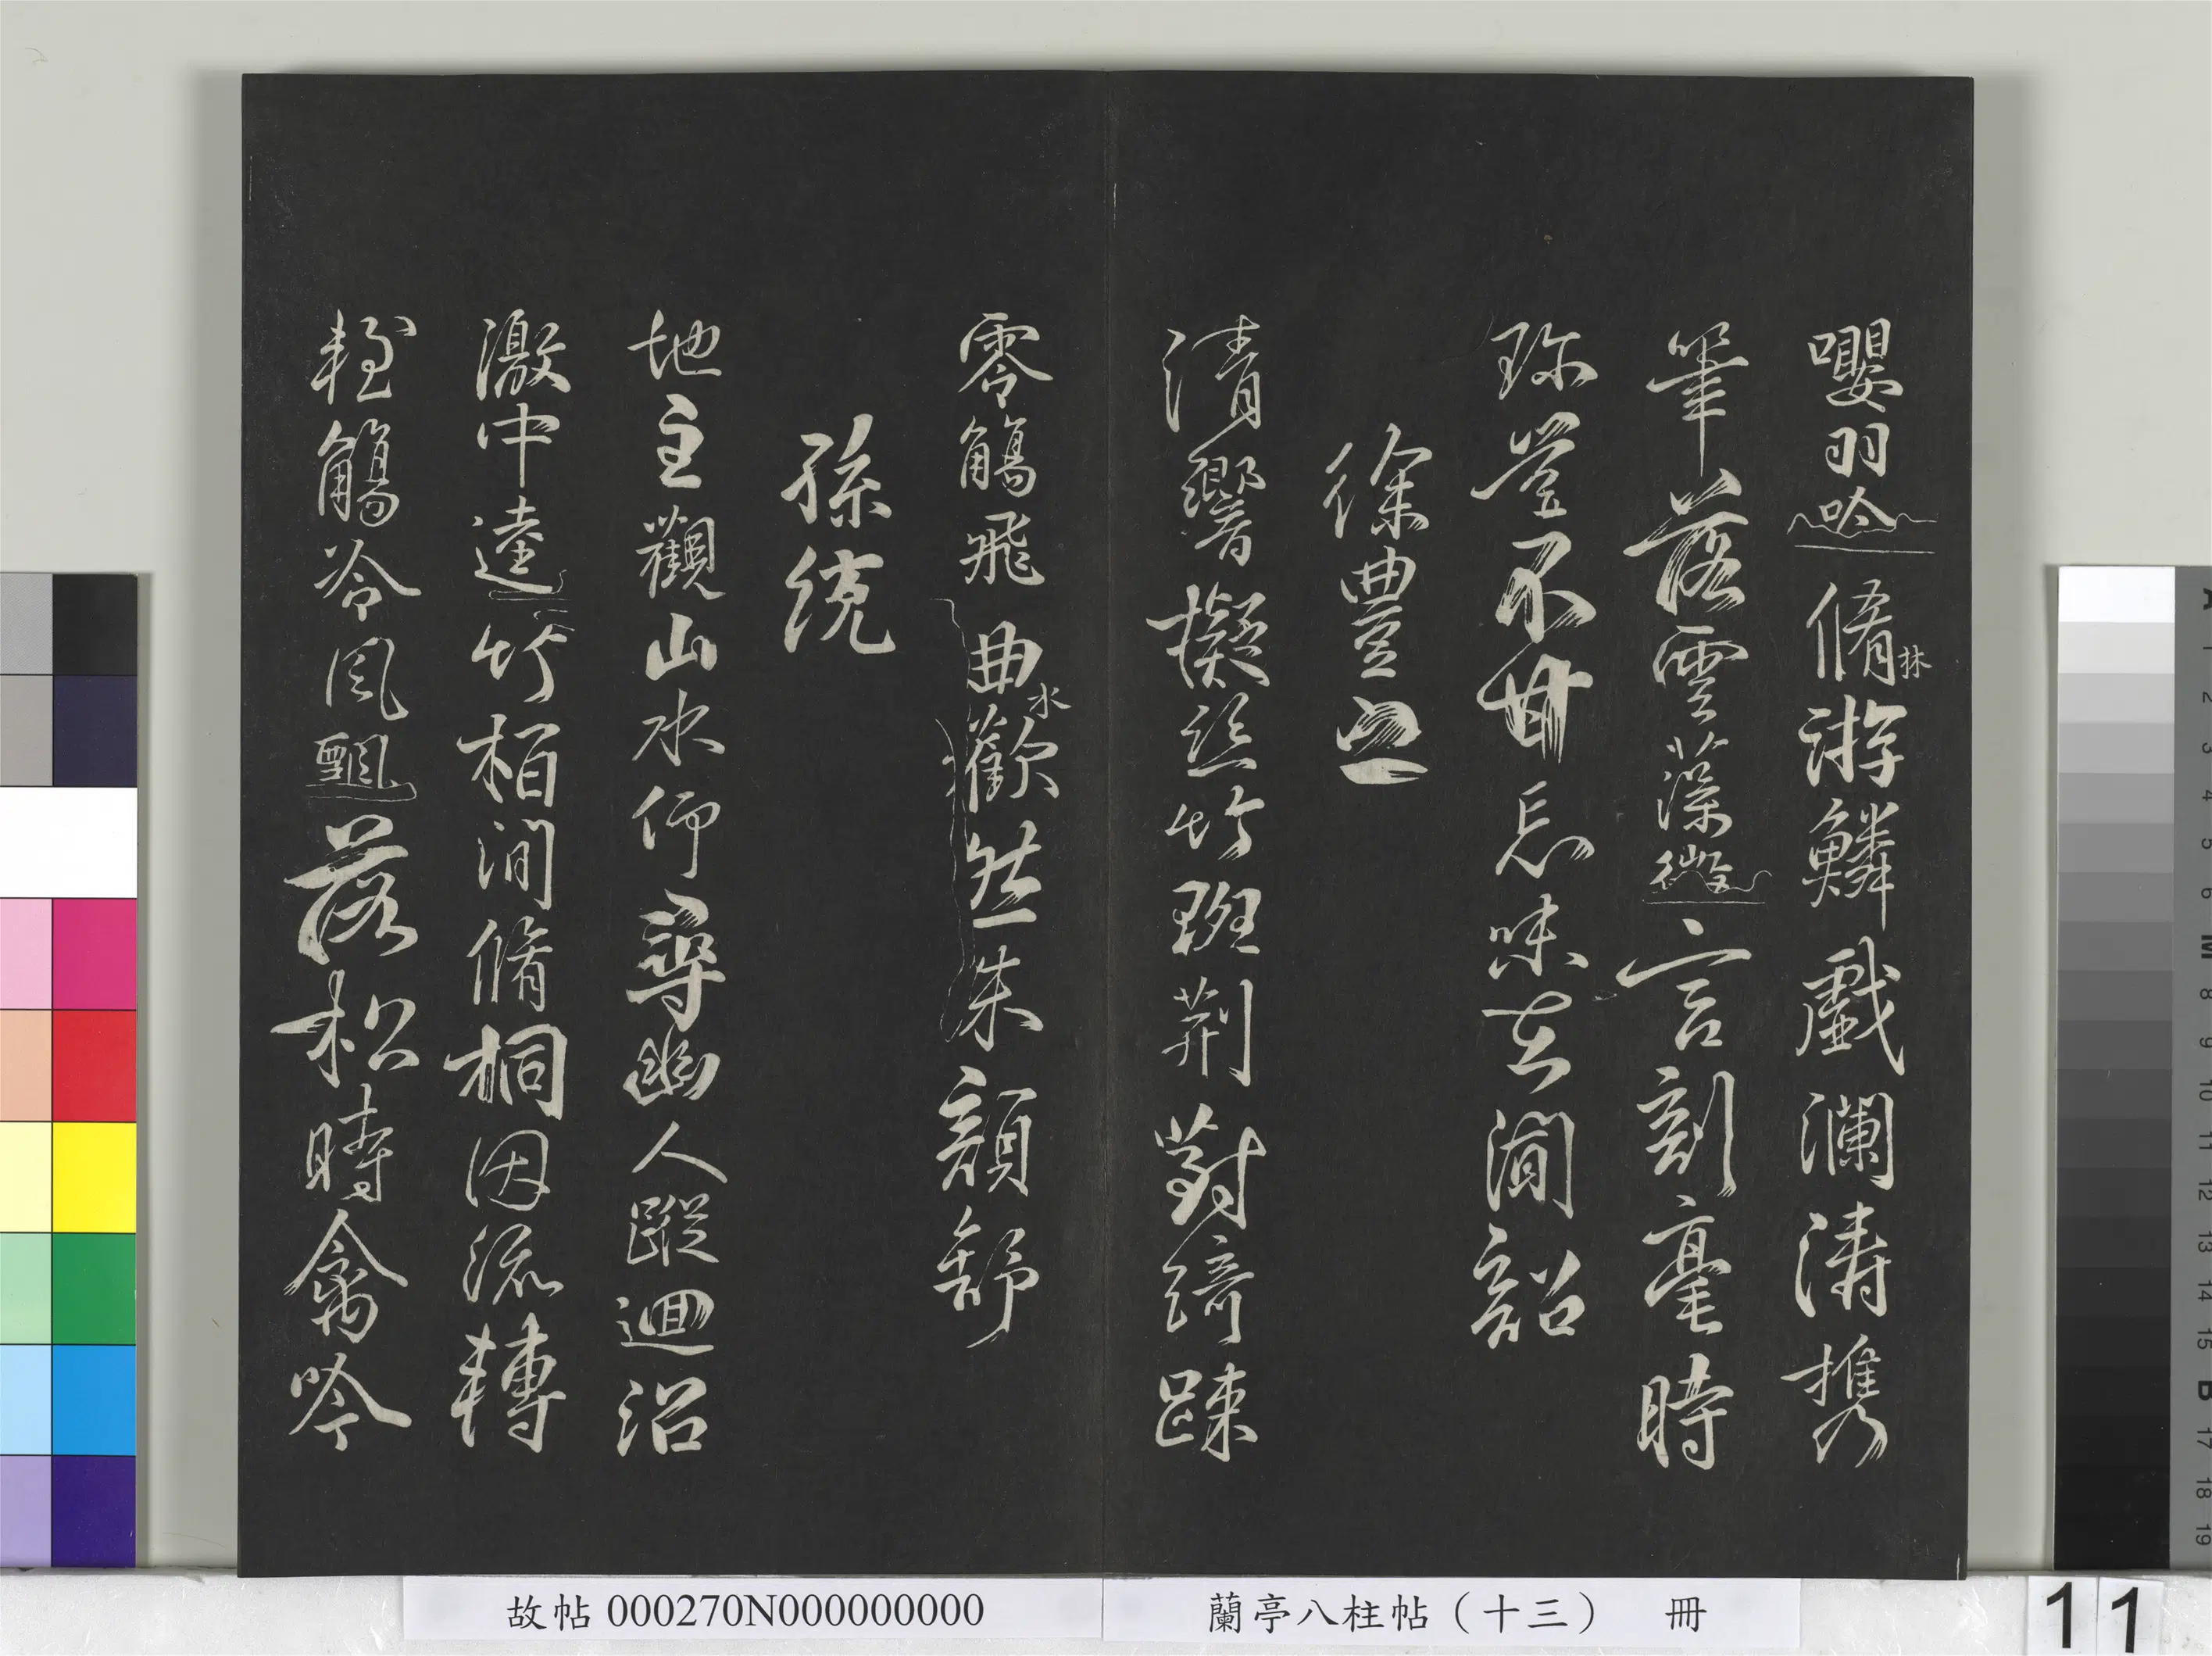 嚶羽吟脩林游鱗戲瀾濤携
筆落雲藻微言剖毫時
珍豈不甘忘味在聞韶
徐豐之
清響擬絲竹班荆對綺疎
零觴飛曲水歡然朱顔舒
孫統
地主觀山水仰尋幽人蹤迴沼
激中逵竹柏澗脩桐因流轉
輕觴冷風飄落松時禽吟
故帖000270N000000000
蘭亭八柱帖（十三） 冊
11